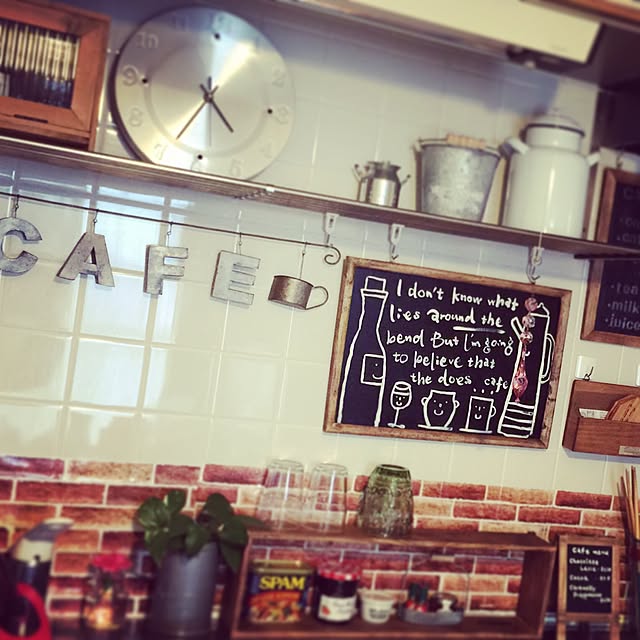 CAFE
I don't know what
lies around the
bend But I'm going
to believe that
the does cafe
tea
milk
juice
SPAM
Cafe menu
Chocolate
Cocoa